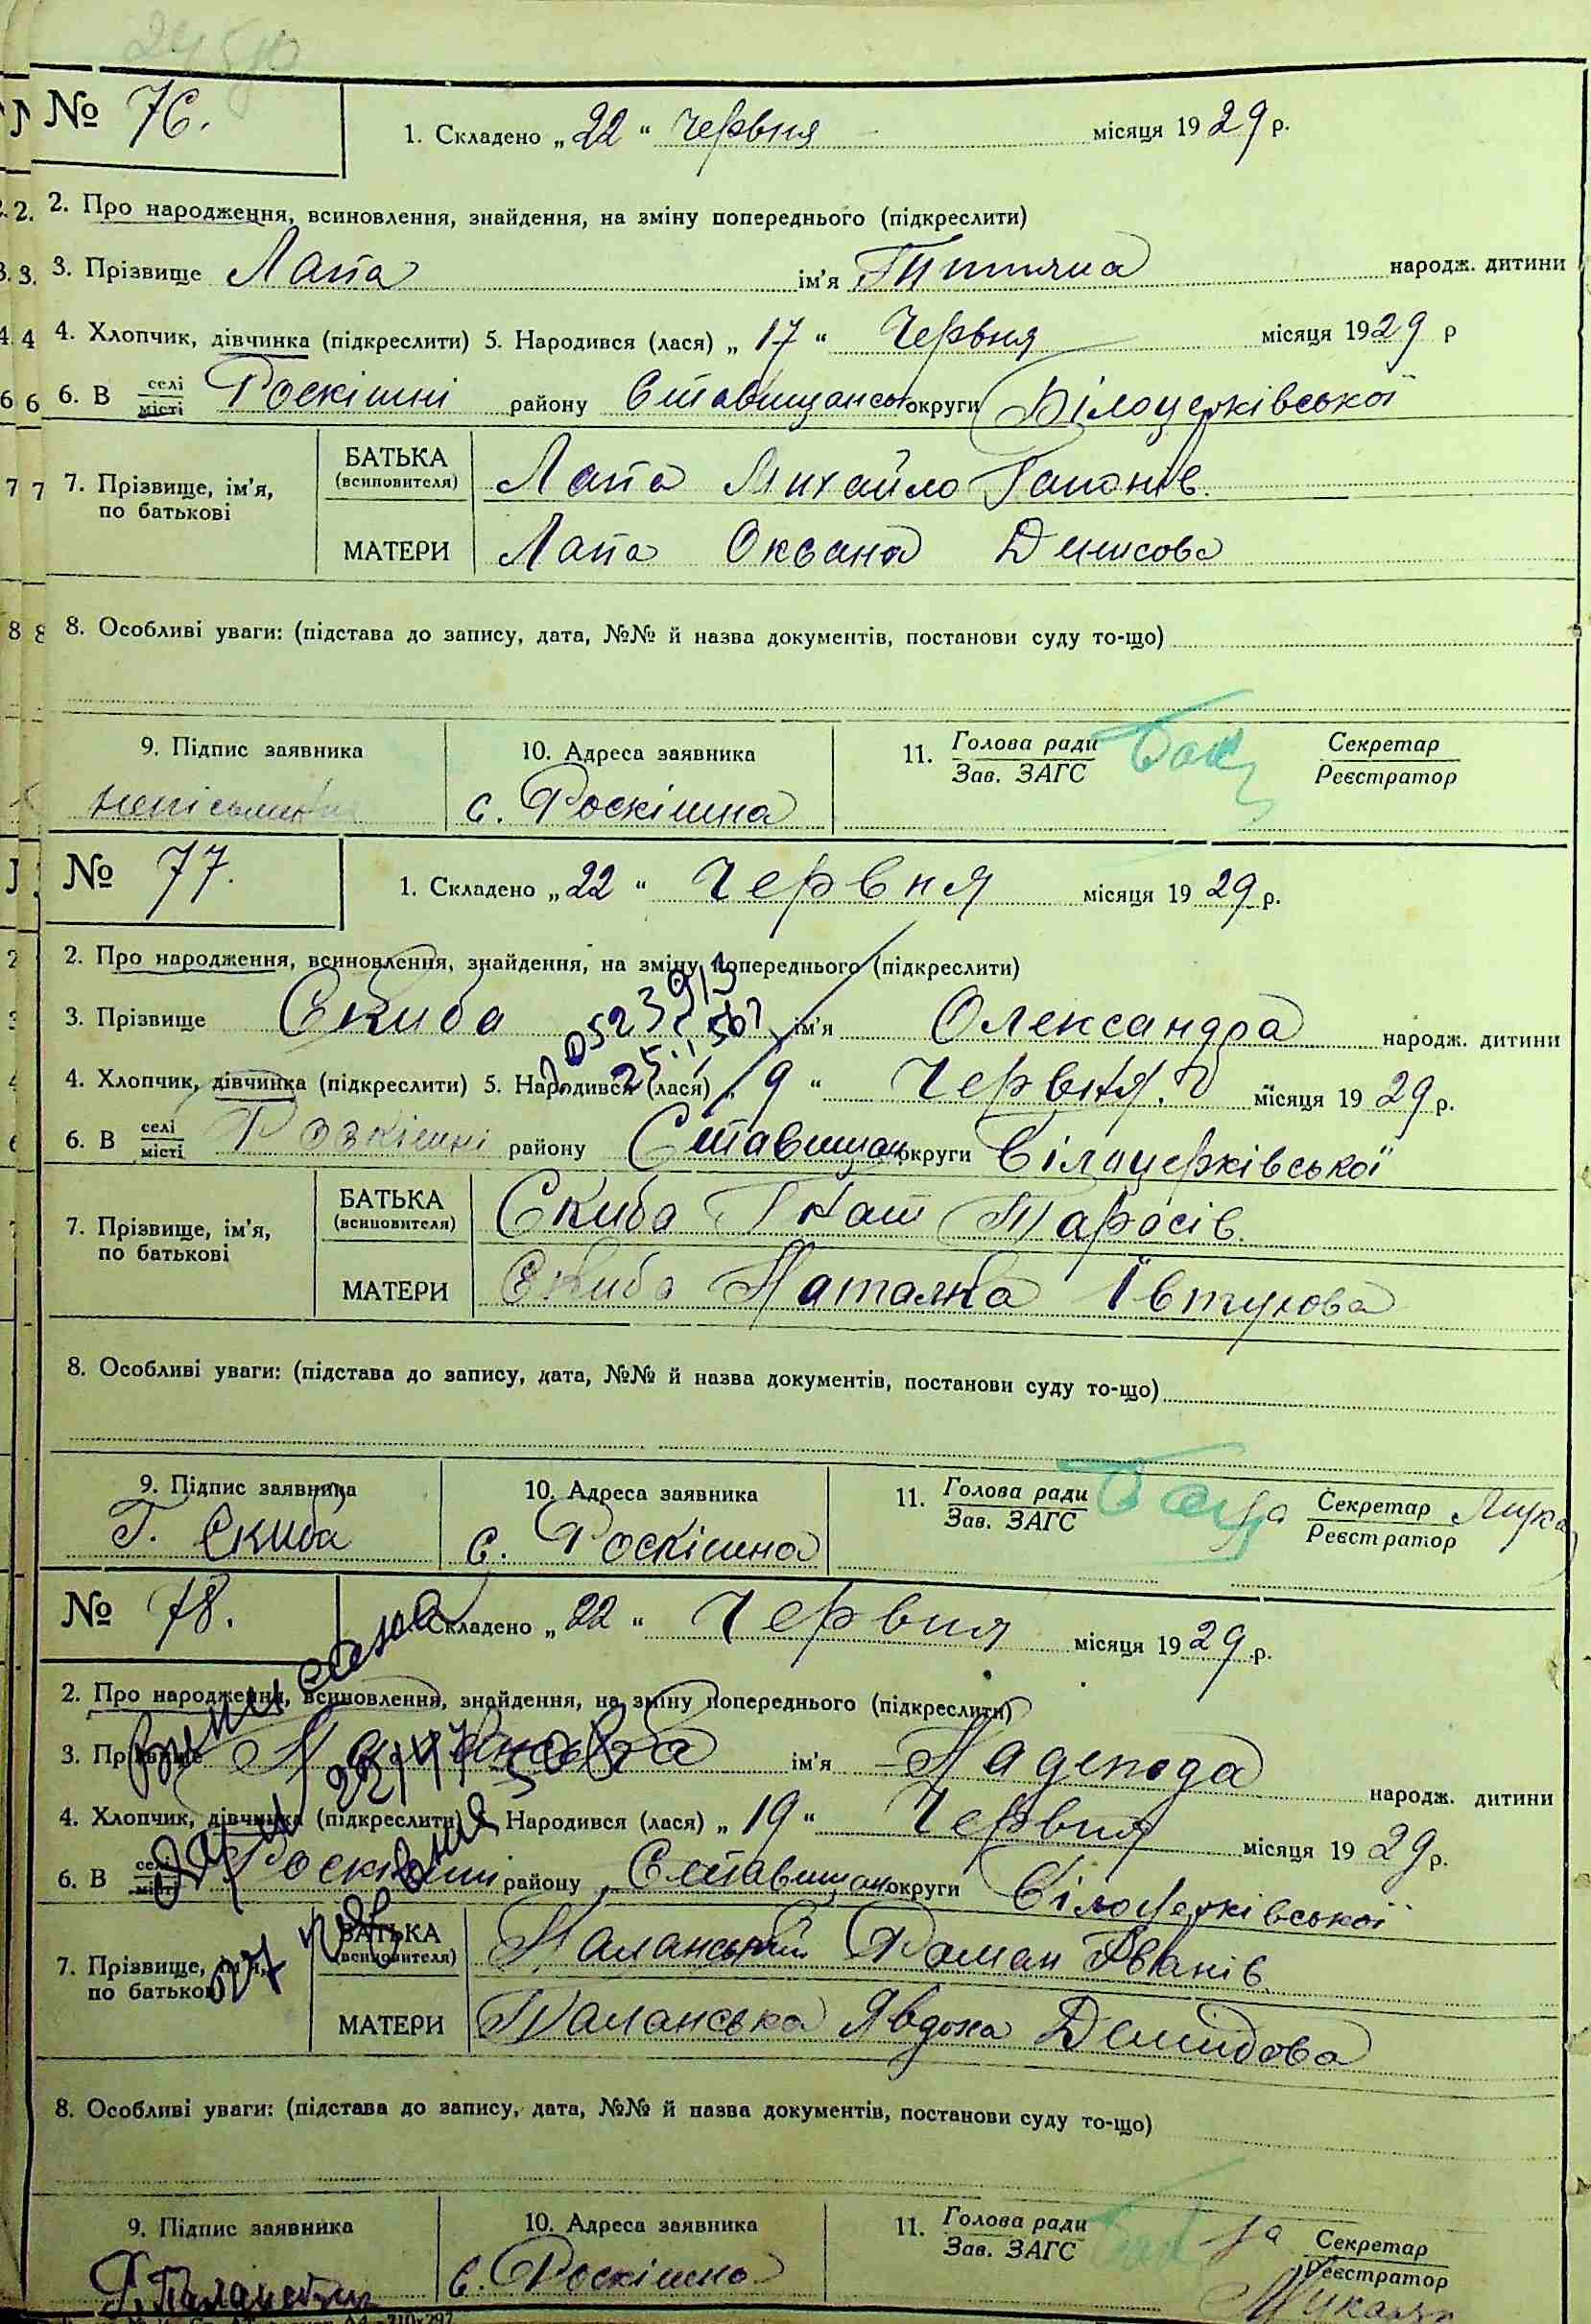 № 76.
1. Складено „22“ Червня місяця 1929 р.
2. Про народження, всиновлення, знайдення, на зміну попереднього (підкреслити)
3. Прізвище Лапа ім'я Титяна народж. дитини
4. Хлопчик, дівчинка (підкреслити) 5. Народився (лася) „17“ Червня місяця 1929 р
6. В селі місті Роскішні району Ставищансь округи Білоцерківської
7. Прізвище, ім'я, по батькові
БАТЬКА (всиновителя) Лапа Михайло Гапонів.
МАТЕРИ Лапа Оксана Денисова
8. Особливі уваги: (підстава до запису, дата, №№ й назва документів, постанови суду то-що)
9. Підпис заявника 10. Адреса заявника 11. Голова ради Зав. ЗАГС Секретар Реєстратор
с. Роскішна
№ 77.
1. Складено „22“ Червня місяця 1929 р.
2. Про народження, всиновлення, знайдення, на зміну попереднього (підкреслити)
3. Прізвище Скиба ім'я Олександра народж. дитини
4. Хлопчик, дівчинка (підкреслити) 5. Народився (лася) „19“ Червня місяця 1929 р.
6. В селі місті Розкішні району Ставищан округи Білоцерківської
7. Прізвище, ім'я, по батькові
БАТЬКА (всиновителя) Скиба Гнат Тарасів.
МАТЕРИ Скиба Наталка Івтухова
8. Особливі уваги: (підстава до запису, дата, №№ й назва документів, постанови суду то-що)
9. Підпис заявника 10. Адреса заявника 11. Голова ради Зав. ЗАГС За Секретар Реєстратор
Г. Скиба с. Роскішна
№ 78.
1. Складено „22“ Червня місяця 1929 р.
2. Про народження, всиновлення, знайдення, на зміну попереднього (підкреслити)
3. Прізвище Паланська ім'я Надежда народж. дитини
4. Хлопчик, дівчинка (підкреслити) 5. Народився (лася) „19“ Червня місяця 1929 р.
6. В селі місті Роскішні району Ставищан округи Білоцерківської
7. Прізвище, ім'я, по батькові
БАТЬКА (всиновителя) Паланський Роман Іванів
МАТЕРИ Паланська Явдоха Демидова
8. Особливі уваги: (підстава до запису, дата, №№ й назва документів, постанови суду то-що)
9. Підпис заявника 10. Адреса заявника 11. Голова ради Зав. ЗАГС За Секретар Реєстратор
Р. Паланський с. Роскішна